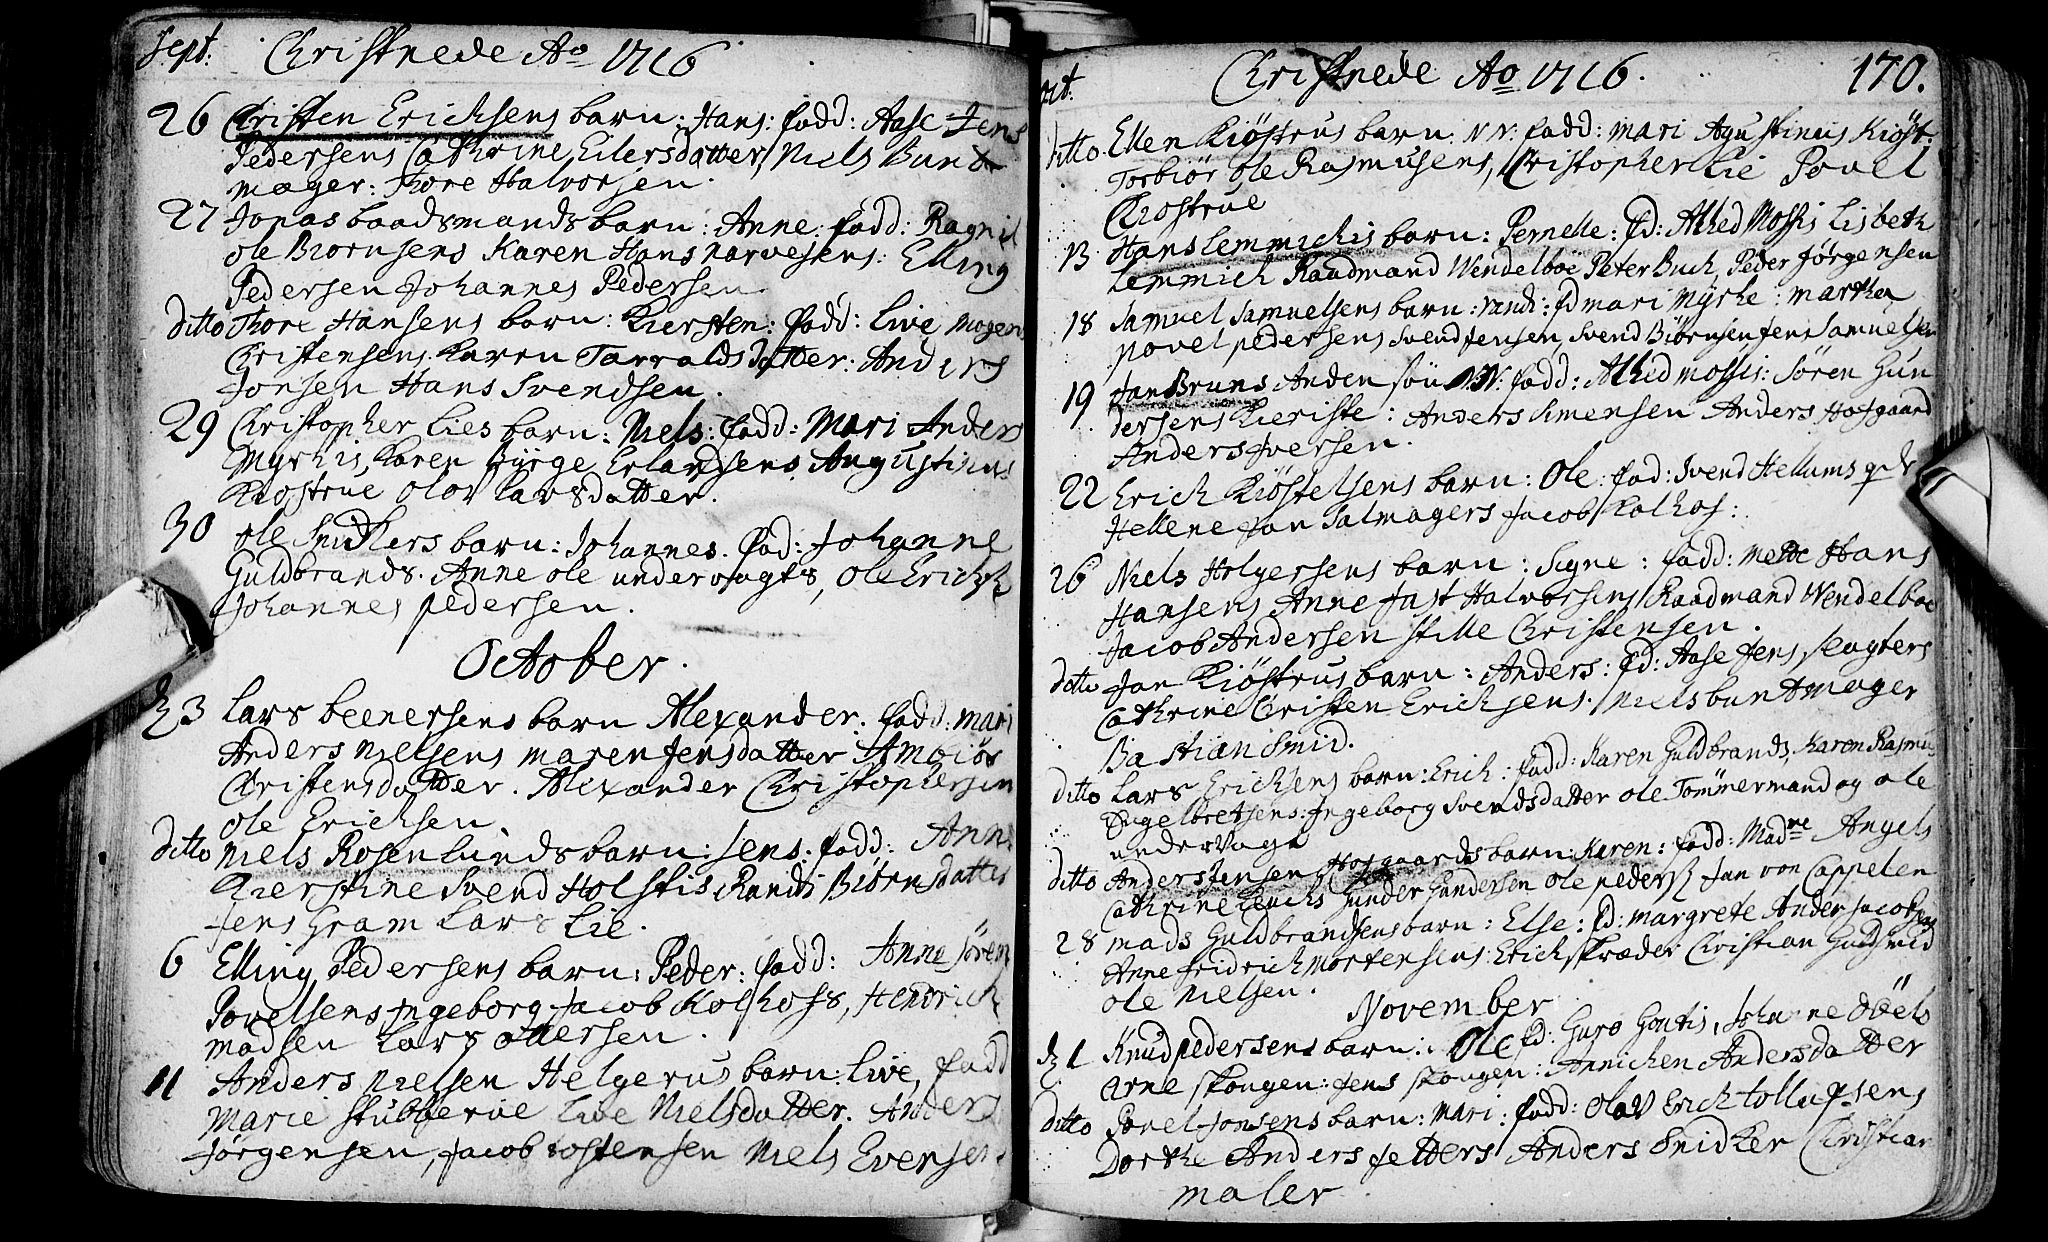 Sept: Christnede Ao 1716
26 Christen Erichsens barn: Hans: fadd: Aase Jens
Pedersens Cathrine Eilersdatter, Niels Bunt
mager: Thore Halvorsen.
27 Jonas baadsmands barn: Anne: fadd: Ragnil
ole Biornsens Karen Hans narvesens: Elling
Pedersen Johannes Pedersen
ditto Thore Hansens barn: Kiersten: fadd: Live Mogens
Christensens Karen Tarraldsdatter: Anders
Jonsen Hans Svendsen.
29 Christopher Lies barn: Niels: fadd: Mari Anders
Myrhis, Karen Byrge Erlandsens Augustinus
Kiostrue Olov Larsdatter.
30 ole Snidkers barn: Johannes. fad: Johanne
Guldbrands. Anne ole undervogts, Ole Erichs
Johannes pedersen.
October.
d 3 Lars beenersens barn Alexander. fadd: mari
Anders Nielsens maren Jensdatter Ambiør
Christensdatter. Alexander Christophersen
Ole Erichsen
ditto Niels Rosenlunds barn: Jens: fadd: Anne
Kierstine Svend Holstis Randi Biørnsdatter
Jens Gram Lars Lie.
6 Elling Pedersens barn: Peder: fadd: Anne Søren
Povelsens Ingeborg Jacob Kolhofs, Hendrich
madsen Lars ottersen.
11 Anders Nielsen Helgerus barn: Live, fadd
Marie stubberue Live Nielsdatter. Anders
Jørgensen, Jacob tostensen Niels Evensen
oct. Christnede Ao 1716. 170.
ditto Ellen Kiøstrus barn. NN: fadd: mari Agustinus Kiøst:
Torbiør ole Rasmusens, Christopher Lie Povel
Chostrue
13 Hans Lemmichis barn: Pernelle: fd: Alhed Mossis Lisbeth
Lemmich Raadmand Wendelboe Peter Buch, Peder Jørgensen
18 Samuel Samuelsens barn: randi: fd mari Myrhe: marthe
povel pedersens Svend Jensen, Svend Biørnsen Jens Samuelsen
19 Jan Bruns Anden søn NN: fadd: Alhed Mossis: Søren Gun
dersens Kieriste: Anders Simensen Anders Hofgaard
Anders Iversen.
22 Erich Kiøstelsens barn: Ole: fad: Svend Hellums
Hellene Jan Salmagers Jacob Kolhof:
26 Niels Holgersens barn: Signe: fadd: mette Hans
Hansens Anne Just Halvorsens Raadmand Wendelboe
Jacob Andersen stille Christensen.
ditto Jan Kiøstrus barn: Anders: fd: Aase Jens slagters
Cathrine Christen Erichsens. Niels buntmager
Bastian Smid.
ditto Lars Erichsens barn: Erich: fadd: Karen Guldbrands, Karen Rasmus
Engelbretsens: Ingeborg Svendsdatter ole Tømmermand og ole
undervogt
ditto Anders Jensen Hofgaards barn: Karen: fadd: Madme Angels
Cathrine Leuchs Gunder Gundersen Ole peders Jan von Cappelen
28 mads Guldbrandsens barn: Else: fd: margrete Anders Jacobsens
Anne fridrich mortensens: Erich skræder Christian Guldsmid
ole Nielsen.
November
d 1 Knud pedersens barn: Ole fd: Guro Goutis, Johanne
Arne skougen: Jens skougen: Annichen Andersdatter
ditto Povel Jonsens barn: mari: fadd: Olav Erich tollefsens
Dorthe Anders fetters Anders Snidker Christian
maler